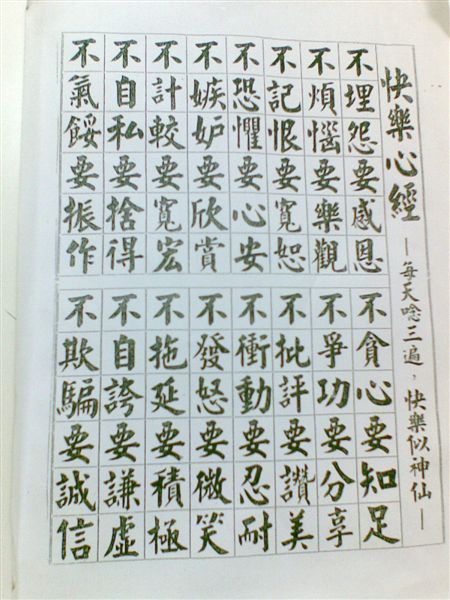 快樂心經
—每天唸三遍，快樂似神仙—
不埋怨要感恩
不煩惱要樂觀
不記恨要寬恕
不恐懼要心安
不嫉妒要欣賞
不計較要寬宏
不自私要捨得
不氣餒要振作
不貪心要知足
不爭功要分享
不批評要讚美
不衝動要忍耐
不發怒要微笑
不拖延要積極
不自誇要謙虛
不欺騙要誠信